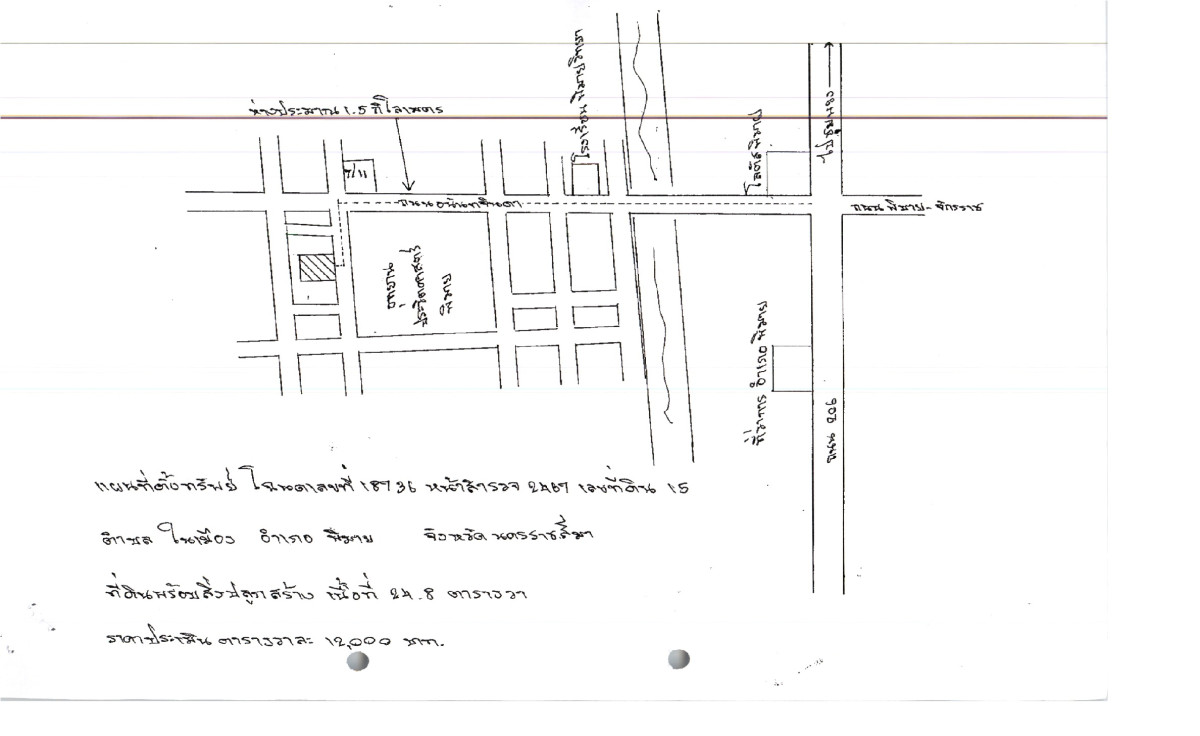 ห่างประมาณ 1.5 กิโลเมตร
โรงเรียน พิมายวิทยา
โลตัสพิมาย
ไปชุมพวง
7/11
ถนนอนันทจินดา
ถนน พิมาย - จักราช
อุทยาน
ประวัติศาสตร์
พิมาย
ที่ว่าการ อำเภอ พิมาย
ถนน 206
แผนที่ตั้งทรัพย์ โฉนดเลขที่ 18736 หน้าสำรวจ 2467 เลขที่ดิน 15
ตำบล ในเมือง อำเภอ พิมาย จังหวัด นครราชสีมา
ที่ดินพร้อมสิ่งปลูกสร้าง เนื้อที่ 24.8 ตารางวา
ราคาประเมิน ตารางวาละ 12,000 บาท.